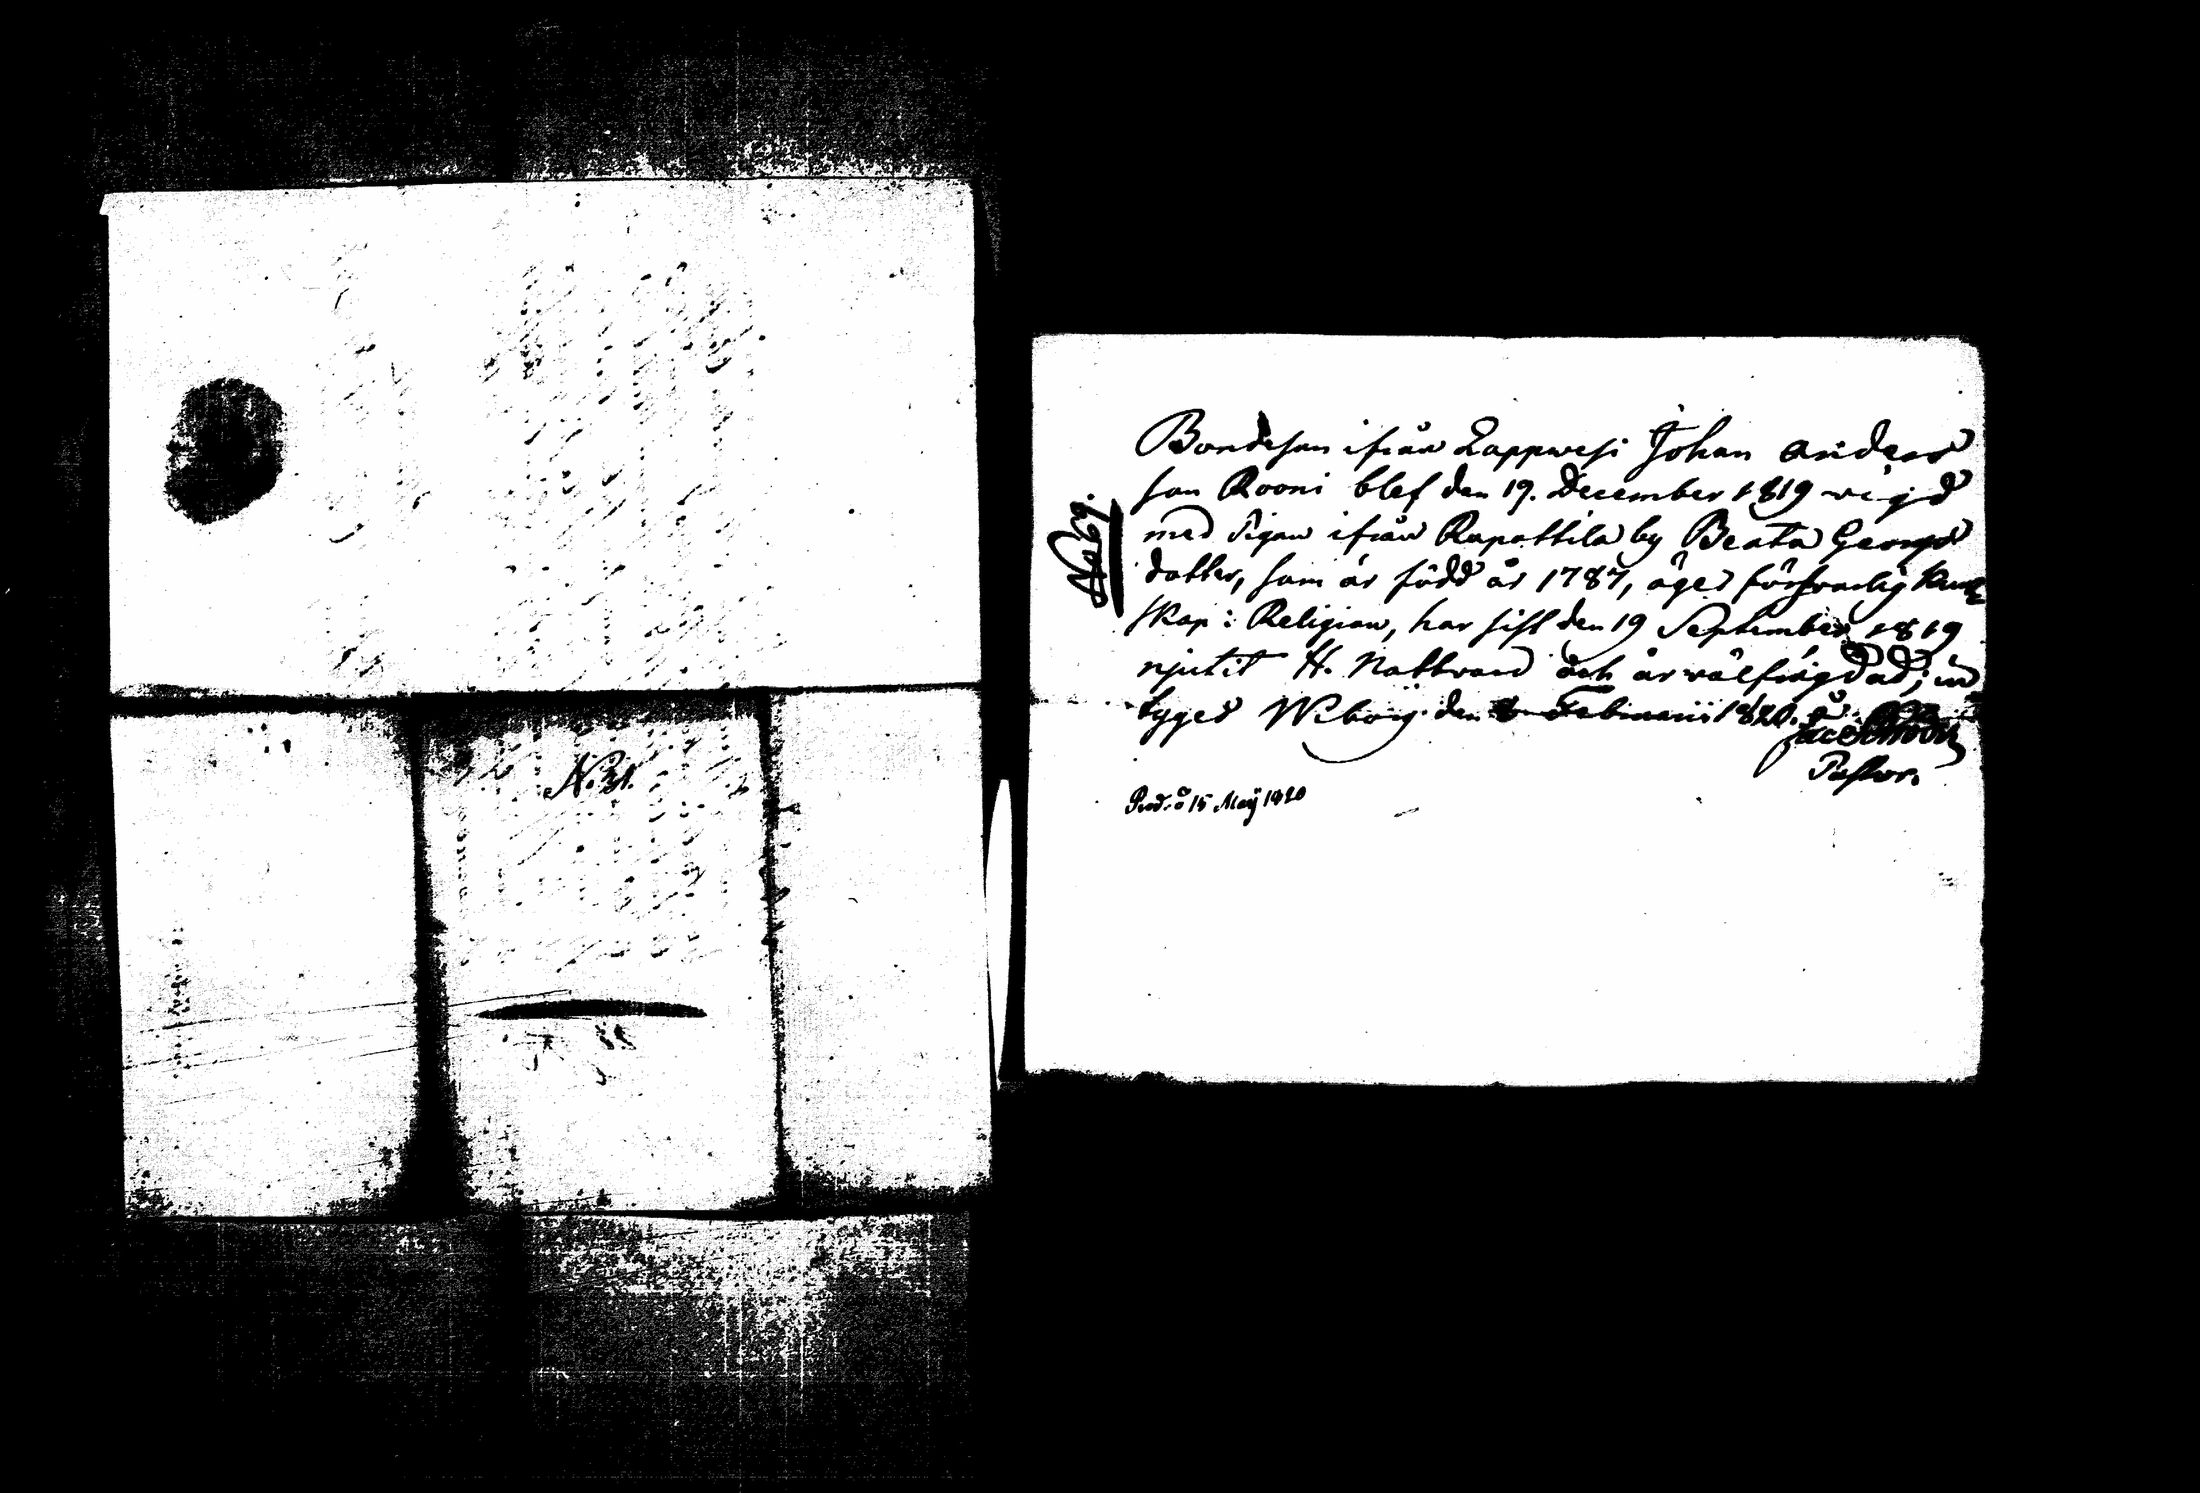 N. 31.
No 69.
Bondeson ifrån Lappwesi Johan Anders
son Rooni blef den 19. December 1819 wigd
med Pigan ifrån Rapattila by Beata Georgs
dotter, som är född år 1787, äger försvarlig kun
skap i Religion, har sist den 19 September 1819
njutit H. Nattvard och är välfrägdad;
tyges Wiborg den 8 Februarii 1820.
Pastor.
Prod. d 15 Maij 1820